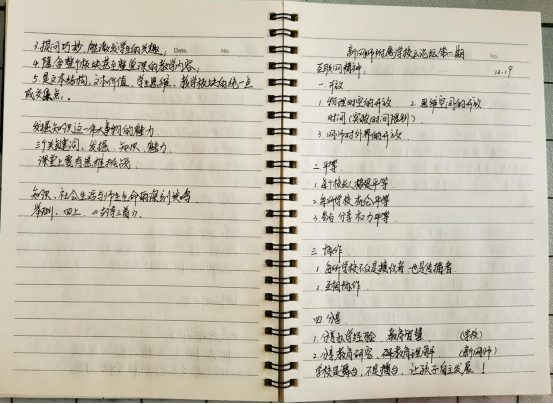 3.提问巧妙,能激发学生的兴趣。
4.隐含整个板块甚至整堂课的教学内容。
5.是文本结构、文本价值、学生思维、教学板块的统一点
或交集点。
发掘知识这一伟大事物的魅力
三个关键词:发掘、知识、魅力
课堂上要有思维挑战
知识、社会生活与师生生命的深刻共鸣
举例:四上《古诗三首》
Date.
No.
新网师附属学校云论坛第一期
互联网精神:
12.19
一.开放
1.物理时空的开放 2.思维空间的开放
时间(突破时间限制)
3.网师对外界的开放
二.平等
1.每个校长人格平等
2.每所学校机会平等
3.参与分享权力平等
三.协作
1.每所学校不仅是接收者,也是传播者
2.互相协作
四.分享
1.分享办学经验、教育智慧 (学校)
2.分享教育研究、教育理解 (新网师)
学校是舞台,不是擂台,让孩子自主发展!